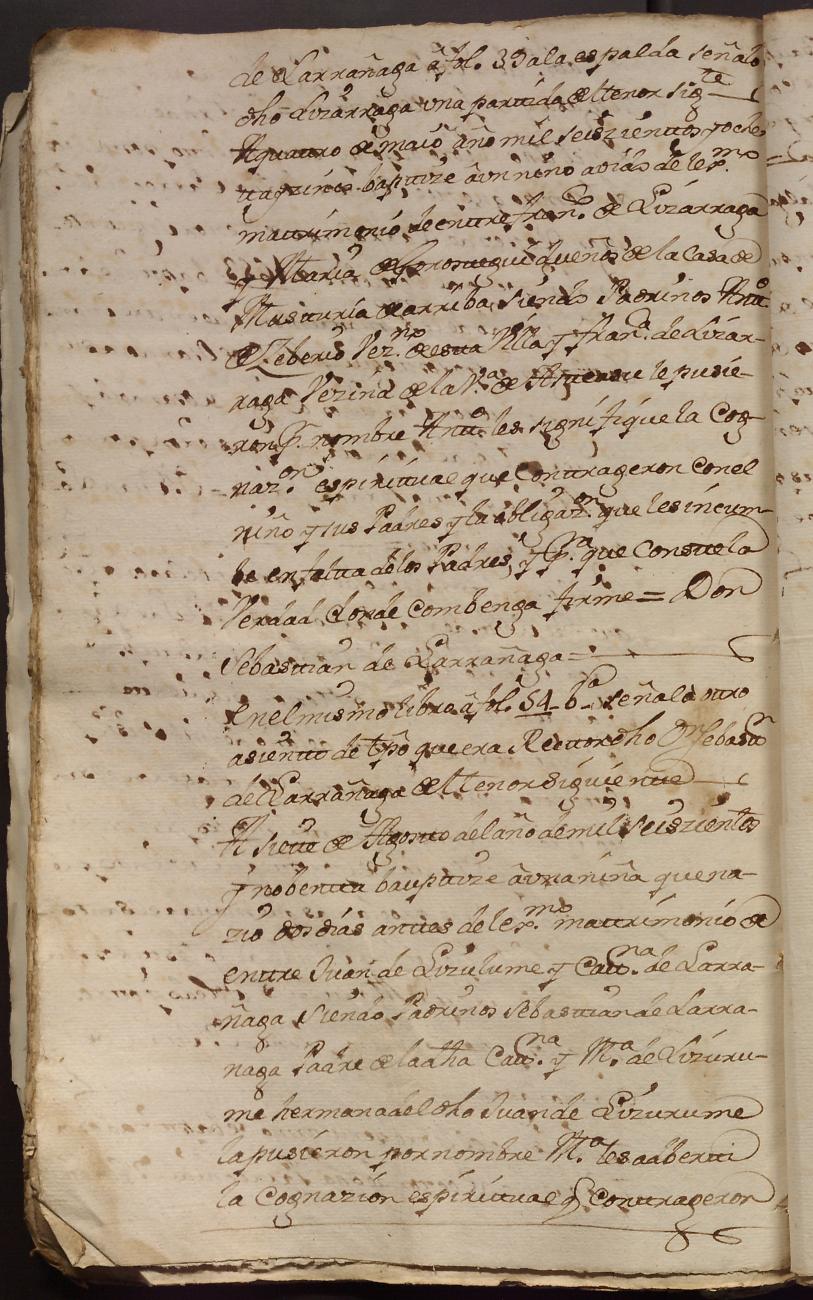 de Larrañaga a fol. 39 ala espalda señalo
dho Lizarraga una partida del tenor sigte
A quatro de maio año mil seiszientos y oche
baptize a un niño a dias de lexmo
matrimonio de entre Franco de Lizarraga
y Maria de dueños de la Casa de
Musturia de arriba siendo Padrinos Anto
de Zeberio Vezno de esta Villa y Franca de Lizar-
raga Vezina de la Va de le pusie-
ron pr nombre Anto les signifique la Cog-
nazon espiritual que Contrageron con el
niño y sus Padres y la obligazon que les incum-
be en falta de los Padres, y pa que Conste la
Verdad donde combenga firme = Don
Sebastian de Larrañaga =
En el mismo libro a fol. 54 ba señala otro
asiento de tpo que era Rector dho Dn Sebastn
de Larrañaga del tenor siguiente
A siete de Agosto del año de mil seiszientos
y nobenta bauptize a una niña que na-
zio dos dias antes de lexmo matrimonio de
entre Juan de Lizulume y Catna de Larra-
ñaga siendo Padrinos Sebastian de Larra-
naga Padre de la dha Catna y Ma de Lizuru-
me hermana del dho Juan de Lizurume
la pusieron por nombre Ma les adberti
la Cognazion espiritual q Contrageron